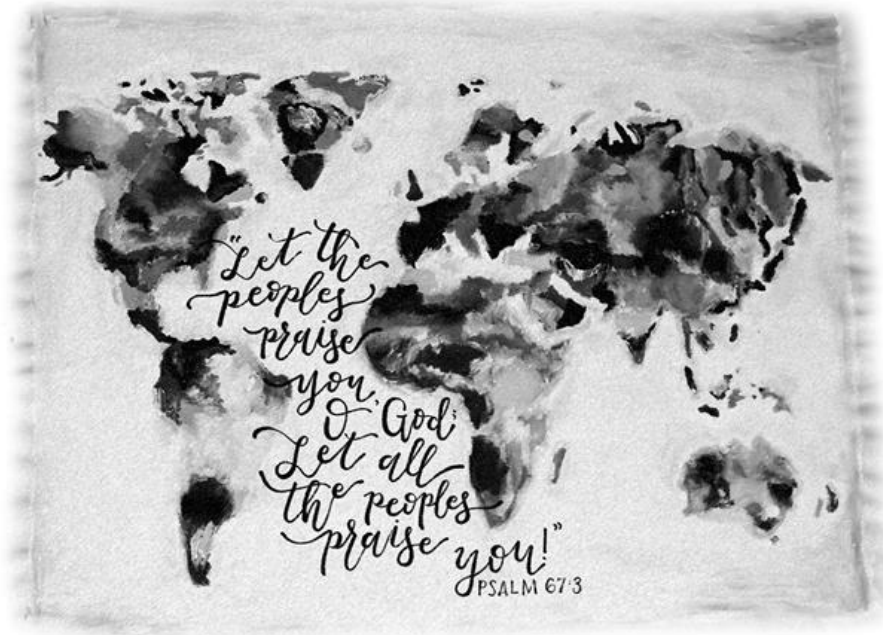 "Let the
peoples
praise
you,
O God;
Let all
the peoples
praise
you!"
PSALM 67:3